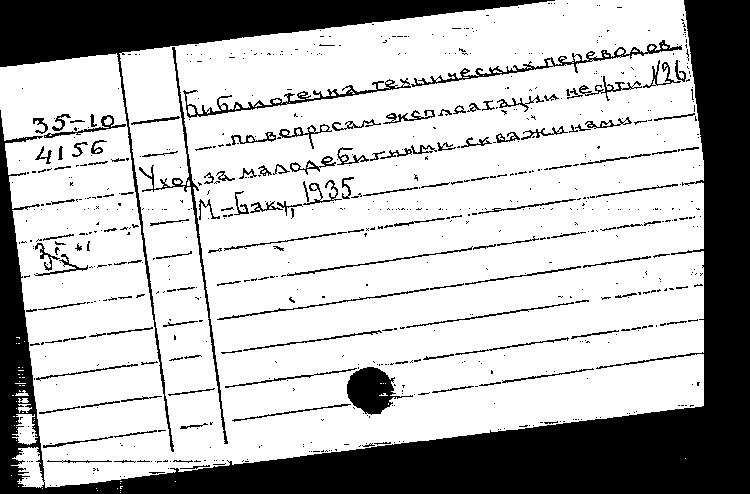 35-10
4156
Библиотечка технических переводов
по вопросам эксплоатации нефти №26
Уход за малодебитными скважинами
М.-Баку, 1935.